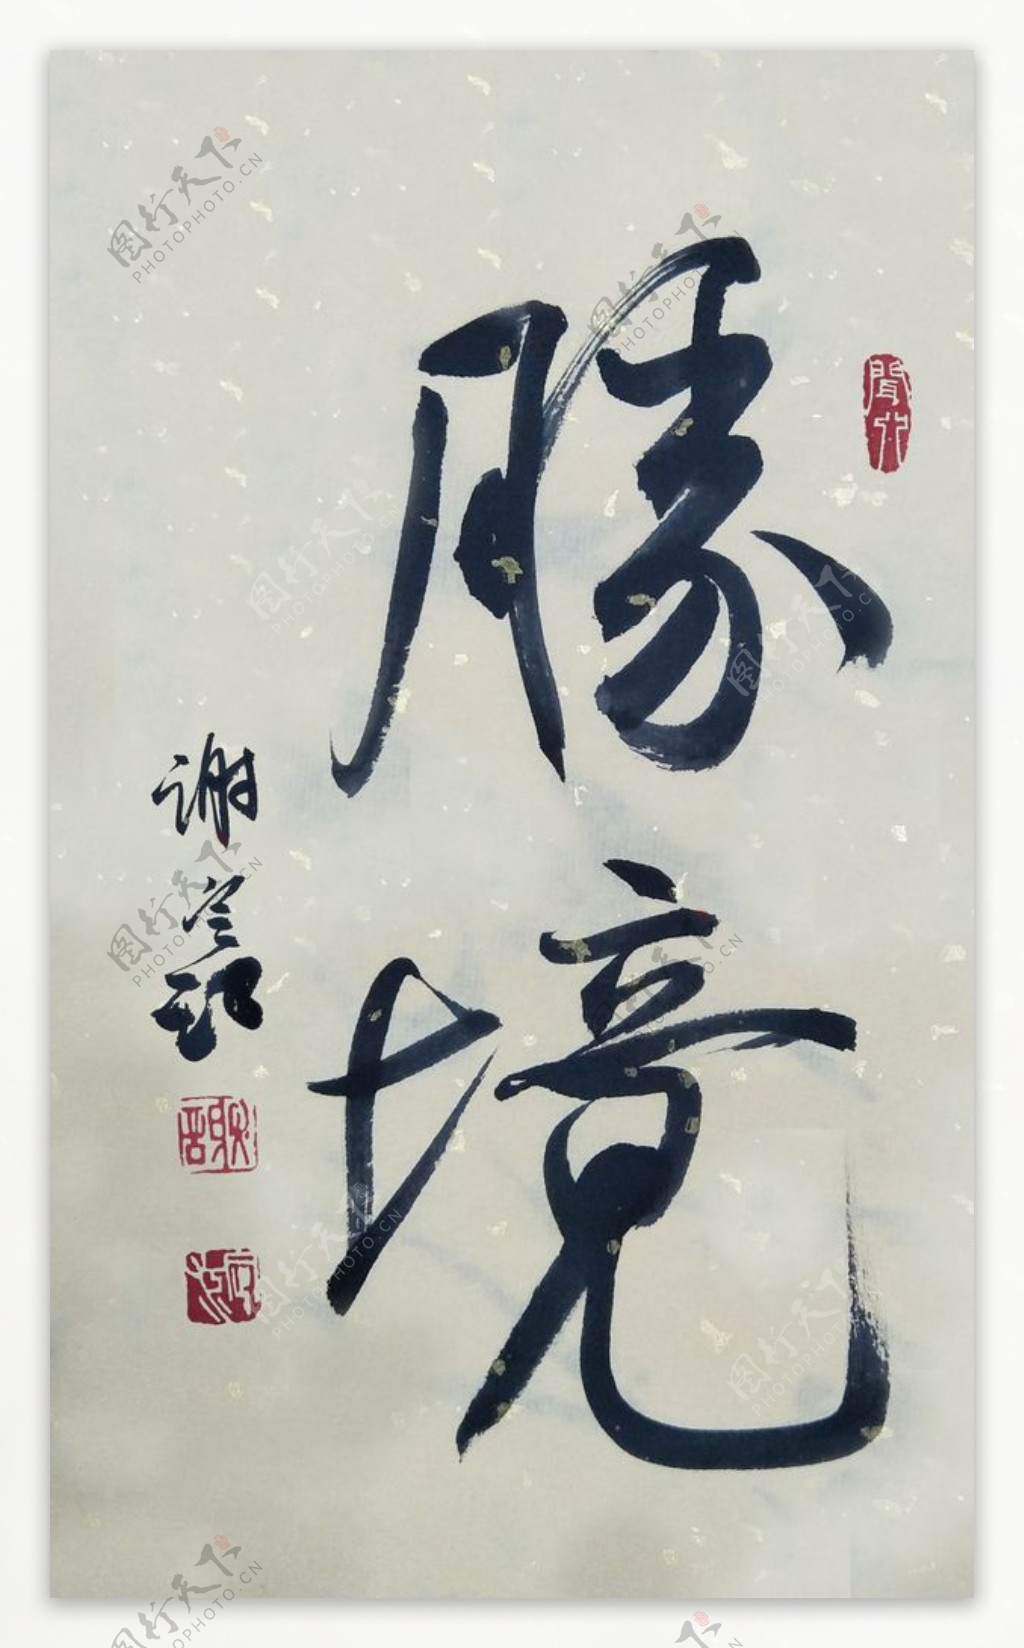 勝境
谢
图行天下
PHOTOPHOTO.CN
图行天下
PHOTOPHOTO.CN
图行天下
PHOTOPHOTO.CN
图行天下
PHOTOPHOTO.CN
图行天下
PHOTOPHOTO.CN
图行天下
PHOTOPHOTO.CN
图行天下
PHOTOPHOTO.CN
图行天下
PHOTOPHOTO.CN
图行天下
PHOTOPHOTO.CN